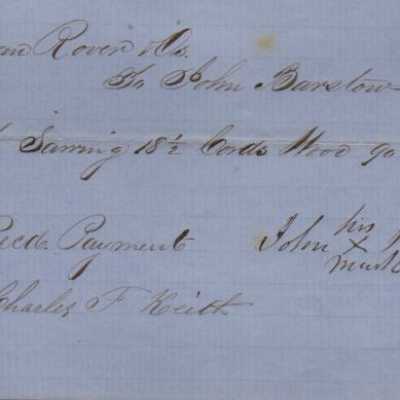 Rover & Co.
To John Barstow
Sawing 18½ Cords Wood 90
Recd. Payment John his X mark
Charles F Keith